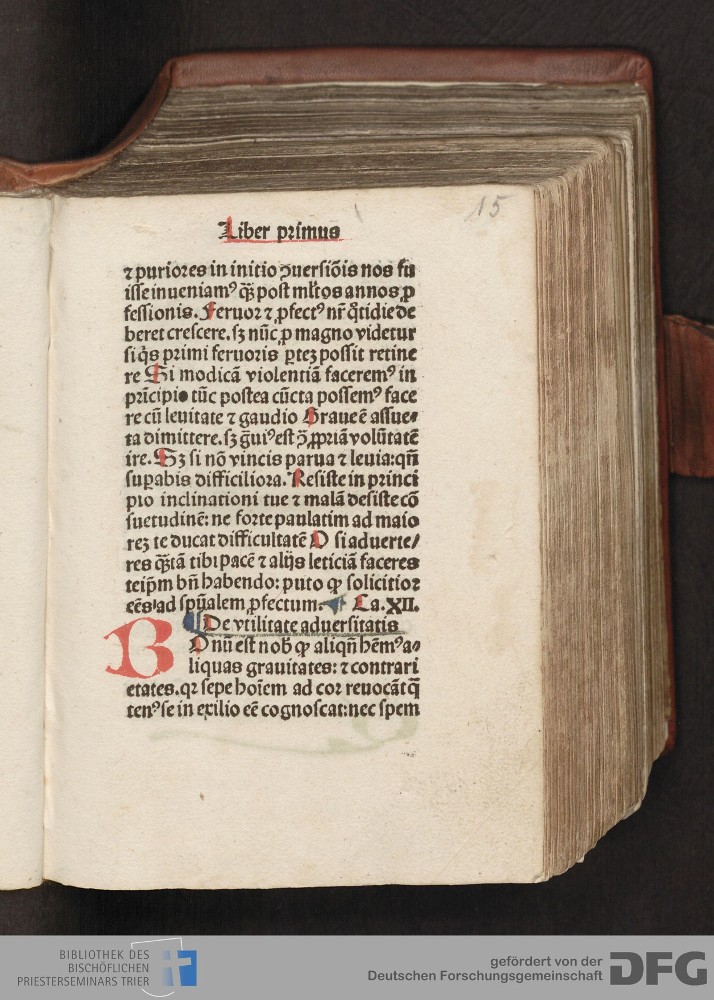 15
Liber primus
⁊ puriores in initio ꝯuersiõis nos fu
isse inueniamꝰ q̃ꝫ post ml̃tos annos ꝓ
fessionis. Feruor ⁊ ꝓfectꝰ nr̃ q̃tidie de
beret crescere. sꝫ nũc ꝓ magno videtur
si q̃s primi feruoris ꝑteꝫ possit retine
re Si modicã violentiã faceremꝰ in
prĩcipio tũc postea cũcta possemꝰ face
re cũ leuitate ⁊ gaudio Graue ẽ assue⸗
ta dimittere. sꝫ g̃uiꝰ est ꝯ̃ ꝓpriã volũtatẽ
ire. Sꝫ si nõ vincis parua ⁊ leuia: qñ
suꝑabis difficiliora. Resiste in princi
pio inclinationi tue ⁊ malã desiste cõ
suetudinẽ: ne forte paulatim ad maio
reꝫ te ducat difficultatẽ O si aduerte/
res q̃ꝫtã tibi pacẽ ⁊ alijs leticiã faceres
teip̃m bñ habendo: puto ꝙ solicitior
eẽs ad sp̃ũalem ꝓfectum. Ca. XII.
De vtilitate aduersitatis
BOnũ est nob̃ ꝙ aliqñ hẽmꝰ a⸗
liquas grauitates: ⁊ contrari
etates. qꝛ sepe hoĩem ad cor reuocãt q̃
tenꝰ se in exilio eẽ cognoscat: nec spem
BIBLIOTHEK DES
BISCHÖFLICHEN
PRIESTERSEMINARS TRIER
gefördert von der
Deutschen Forschungsgemeinschaft
DFG